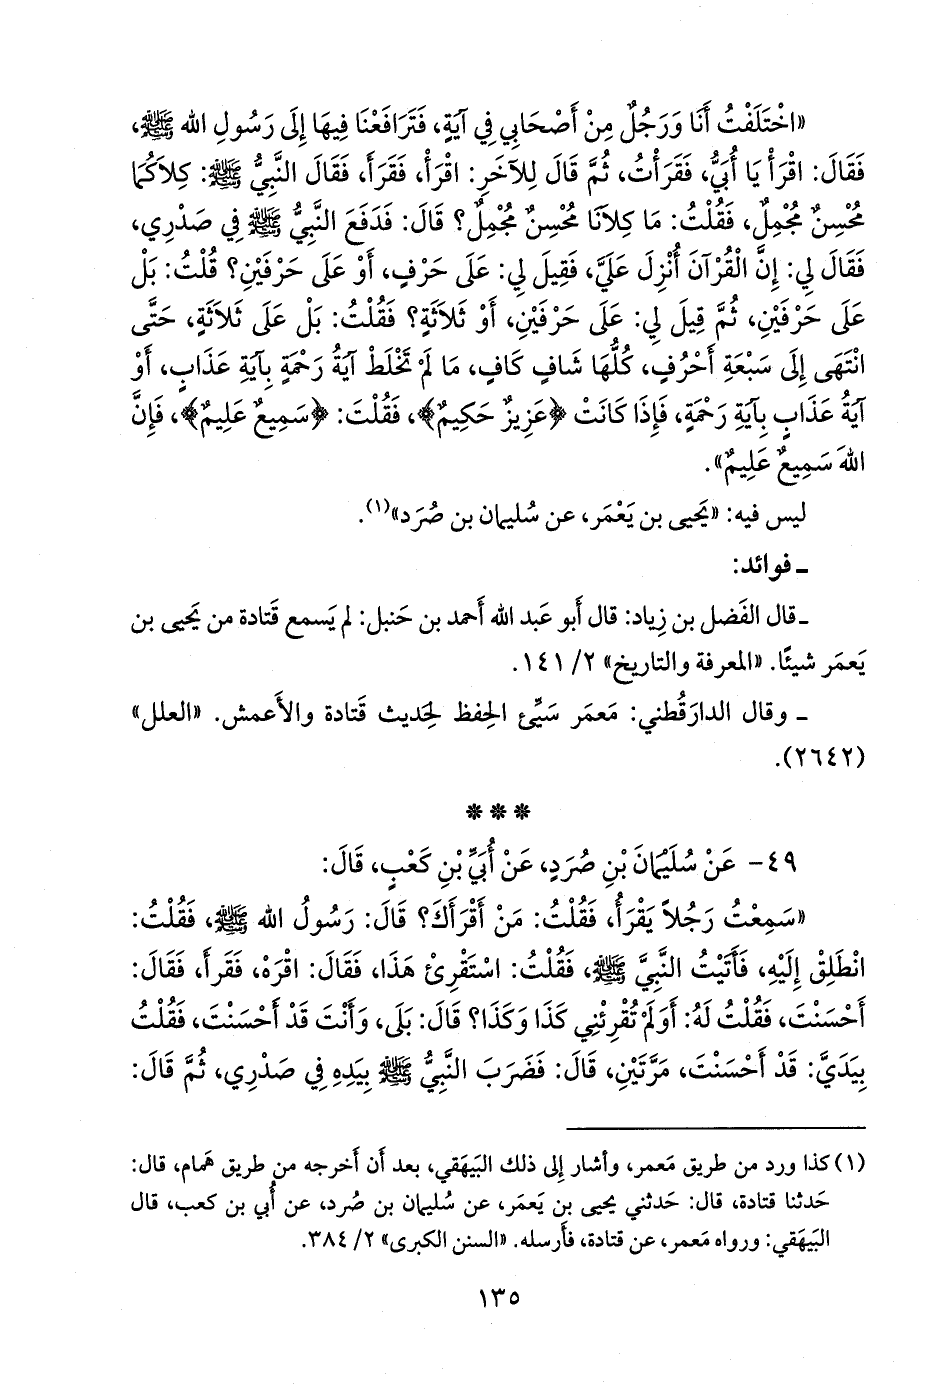 «اخْتَلَفْتُ أَنَا وَرَجُلٌ مِنْ أَصْحَابِي فِي آيَةٍ، فَتَرَافَعْنَا فِيهَا إِلَى رَسُولِ الله ﷺ،
فَقَالَ: اقْرَأْ يَا أُبَيُّ، فَقَرَأْتُ، ثُمَّ قَالَ لِلآخَرِ: اقْرَأْ، فَقَرَأَ، فَقَالَ النَّبِيُّ ﷺ: كِلاَكُمَا
مُحْسِنٌ مُجْمِلٌ، فَقُلْتُ: مَا كِلاَنَا مُحْسِنٌ مُجْمِلٌ؟ قَالَ: فَدَفَعَ النَّبِيُّ ﷺ فِي صَدْرِي،
فَقَالَ لِي: إِنَّ الْقُرْآنَ أُنْزِلَ عَلَيَّ، فَقِيلَ لِي: عَلَى حَرْفٍ، أَوْ عَلَى حَرْفَيْنِ؟ قُلْتُ: بَلْ
عَلَى حَرْفَيْنِ، ثُمَّ قِيلَ لِي: عَلَى حَرْفَيْنِ، أَوْ ثَلاَثَةٍ؟ فَقُلْتُ: بَلْ عَلَى ثَلاَثَةٍ، حَتَّى
انْتَهَى إِلَى سَبْعَةِ أَحْرُفٍ، كُلُّهَا شَافٍ كَافٍ، مَا لَمْ تَخْلَطْ آيَةُ رَحْمَةٍ بِآيَةِ عَذَابٍ، أَوْ
آيَةُ عَذَابٍ بِآيَةِ رَحْمَةٍ، فَإِذَا كَانَتْ ﴿عَزِيزٌ حَكِيمٌ﴾، فَقُلْتَ: ﴿سَمِيعٌ عَلِيمٌ﴾، فَإِنَّ
اللهَ سَمِيعٌ عَلِيمٌ».
ليس فيه: «يَحيى بن يَعْمَر، عن سُليمان بن صُرَد»(١).
ـ فوائد:
ـ قال الفَضل بن زِياد: قال أَبو عَبد الله أَحمد بن حَنبل: لم يَسمع قَتادة من يَحيى بن
يَعمَر شيئًا. «المعرفة والتاريخ» ٢/ ١٤١.
ـ وقال الدارَقُطني: مَعمَر سَيِّئ الحِفظ لحِديث قَتادة والأَعمش. «العلل»
(٢٦٤٢).
* * *
٤٩- عَنْ سُلَيْمَانَ بْنِ صُرَدٍ، عَنْ أُبَيِّ بْنِ كَعْبٍ، قَالَ:
«سَمِعْتُ رَجُلاً يَقْرَأُ، فَقُلْتُ: مَنْ أَقْرَأَكَ؟ قَالَ: رَسُولُ الله ﷺ، فَقُلْتُ:
انْطَلِقْ إِلَيْهِ، فَأَتَيْتُ النَّبِيَّ ﷺ، فَقُلْتُ: اسْتَقْرِئْ هَذَا، فَقَالَ: اقْرَهْ، فَقَرَأَ، فَقَالَ:
أَحْسَنْتَ، فَقُلْتُ لَهُ: أَوَلَمْ تُقْرِئْنِي كَذَا وَكَذَا؟ قَالَ: بَلَى، وَأَنْتَ قَدْ أَحْسَنْتَ، فَقُلْتُ
بِيَدَيَّ: قَدْ أَحْسَنْتَ، مَرَّتَيْنِ، قَالَ: فَضَرَبَ النَّبِيُّ ﷺ بِيَدِهِ فِي صَدْرِي، ثُمَّ قَالَ:
(١) كذا ورد من طريق مَعمر، وأشار إِلى ذلك البَيهَقي، بعد أَن أَخرجه من طريق هَمام، قال:
حَدثنا قتادة، قال: حَدثني يحيى بن يَعمَر، عن سُليمان بن صُرد، عن أُبي بن كعب، قال
البَيهَقي: ورواه مَعمر، عن قتادة، فأَرسله. «السنن الكبرى» ٢/ ٣٨٤.
١٣٥